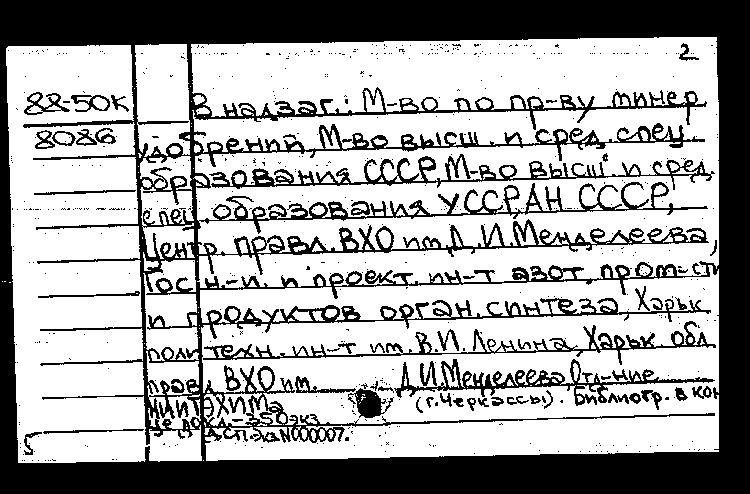 2
88-50К
8086
В надзаг.: М-во по пр-ву минер
удобрений, М-во высш. и сред. спец.
образования СССР, М-во высш. и сред.
спец. образования УССР, АН СССР,
Центр. правл. ВХО им. Д.И.Менделеева,
Гос н.-и. и проект. ин-т азот. пром-сти
и продуктов орган. синтеза, Харьк
политехн. ин-т им. В.И. Ленина, Харьк обл
правл ВХО им. Д.И.Менделеева, Отд-ние
НИИТЭХИМа (г.Черкассы). Библиогр. в кон
350 экз
ДСП. экз N000007.
5